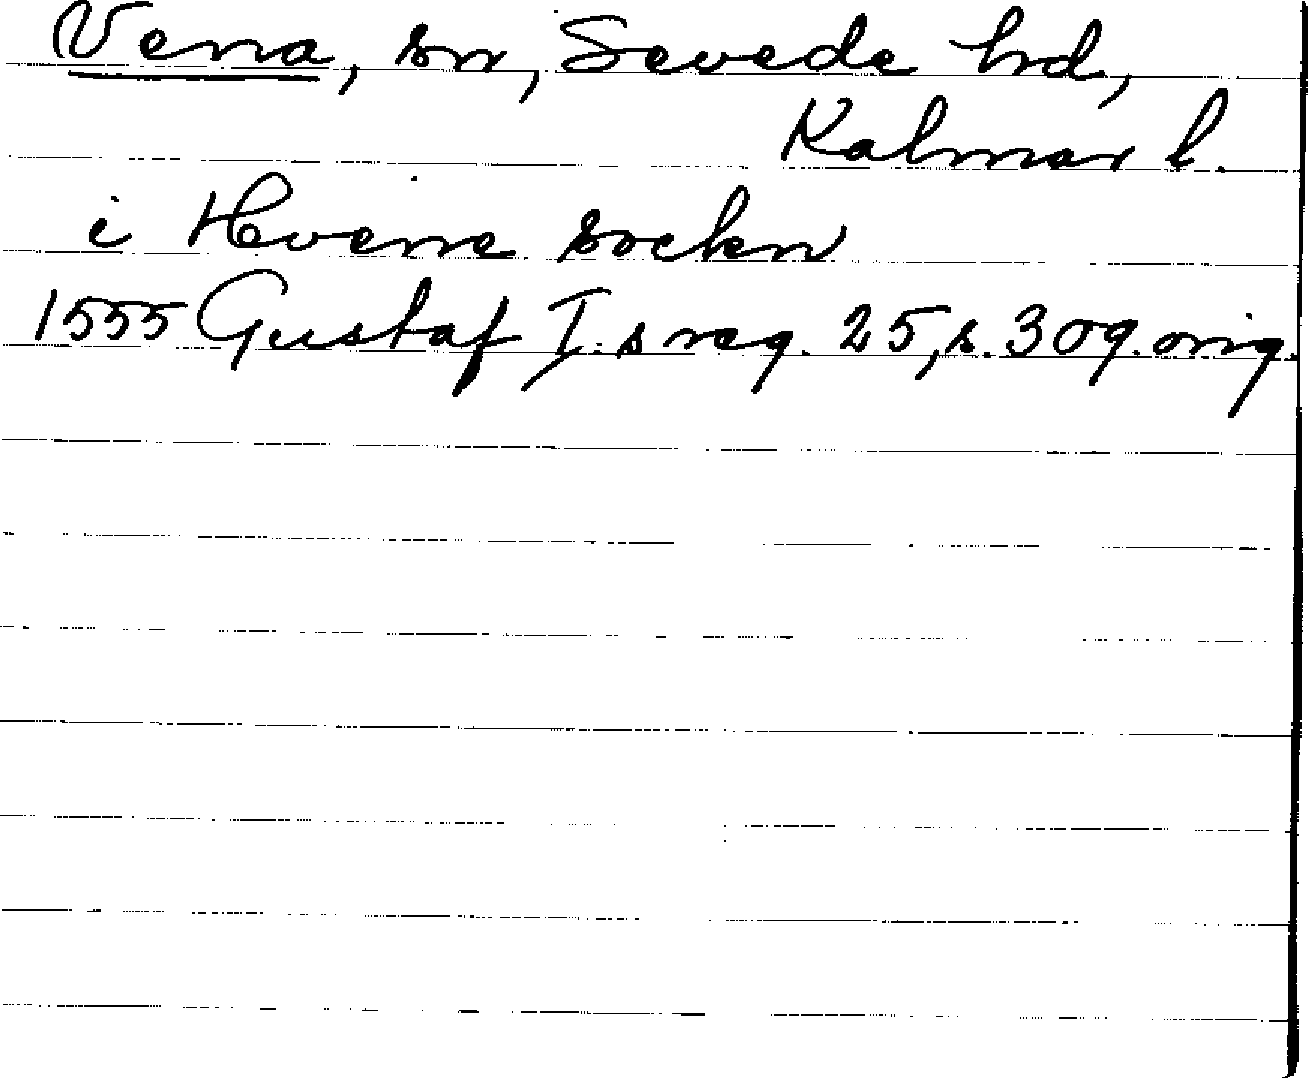 Vena, sn, Sevede hd,
Kalmar l.
i Hvene sockn
1555 Gustaf I:s reg. 25, s. 309. orig.